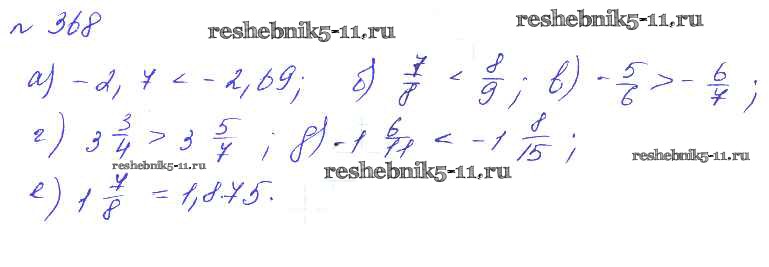 № 368 reshebnik5-11.ru reshebnik5-11.ru
а) -2,7 < -2,69; б) 7/8 < 8/9; в) -5/6 > -6/7;
г) 3 3/4 > 3 5/7; д) -1 6/11 < -1 8/15;
reshebnik5-11.ru reshebnik5-11.ru reshebnik5-11.ru
е) 1 7/8 = 1,875.